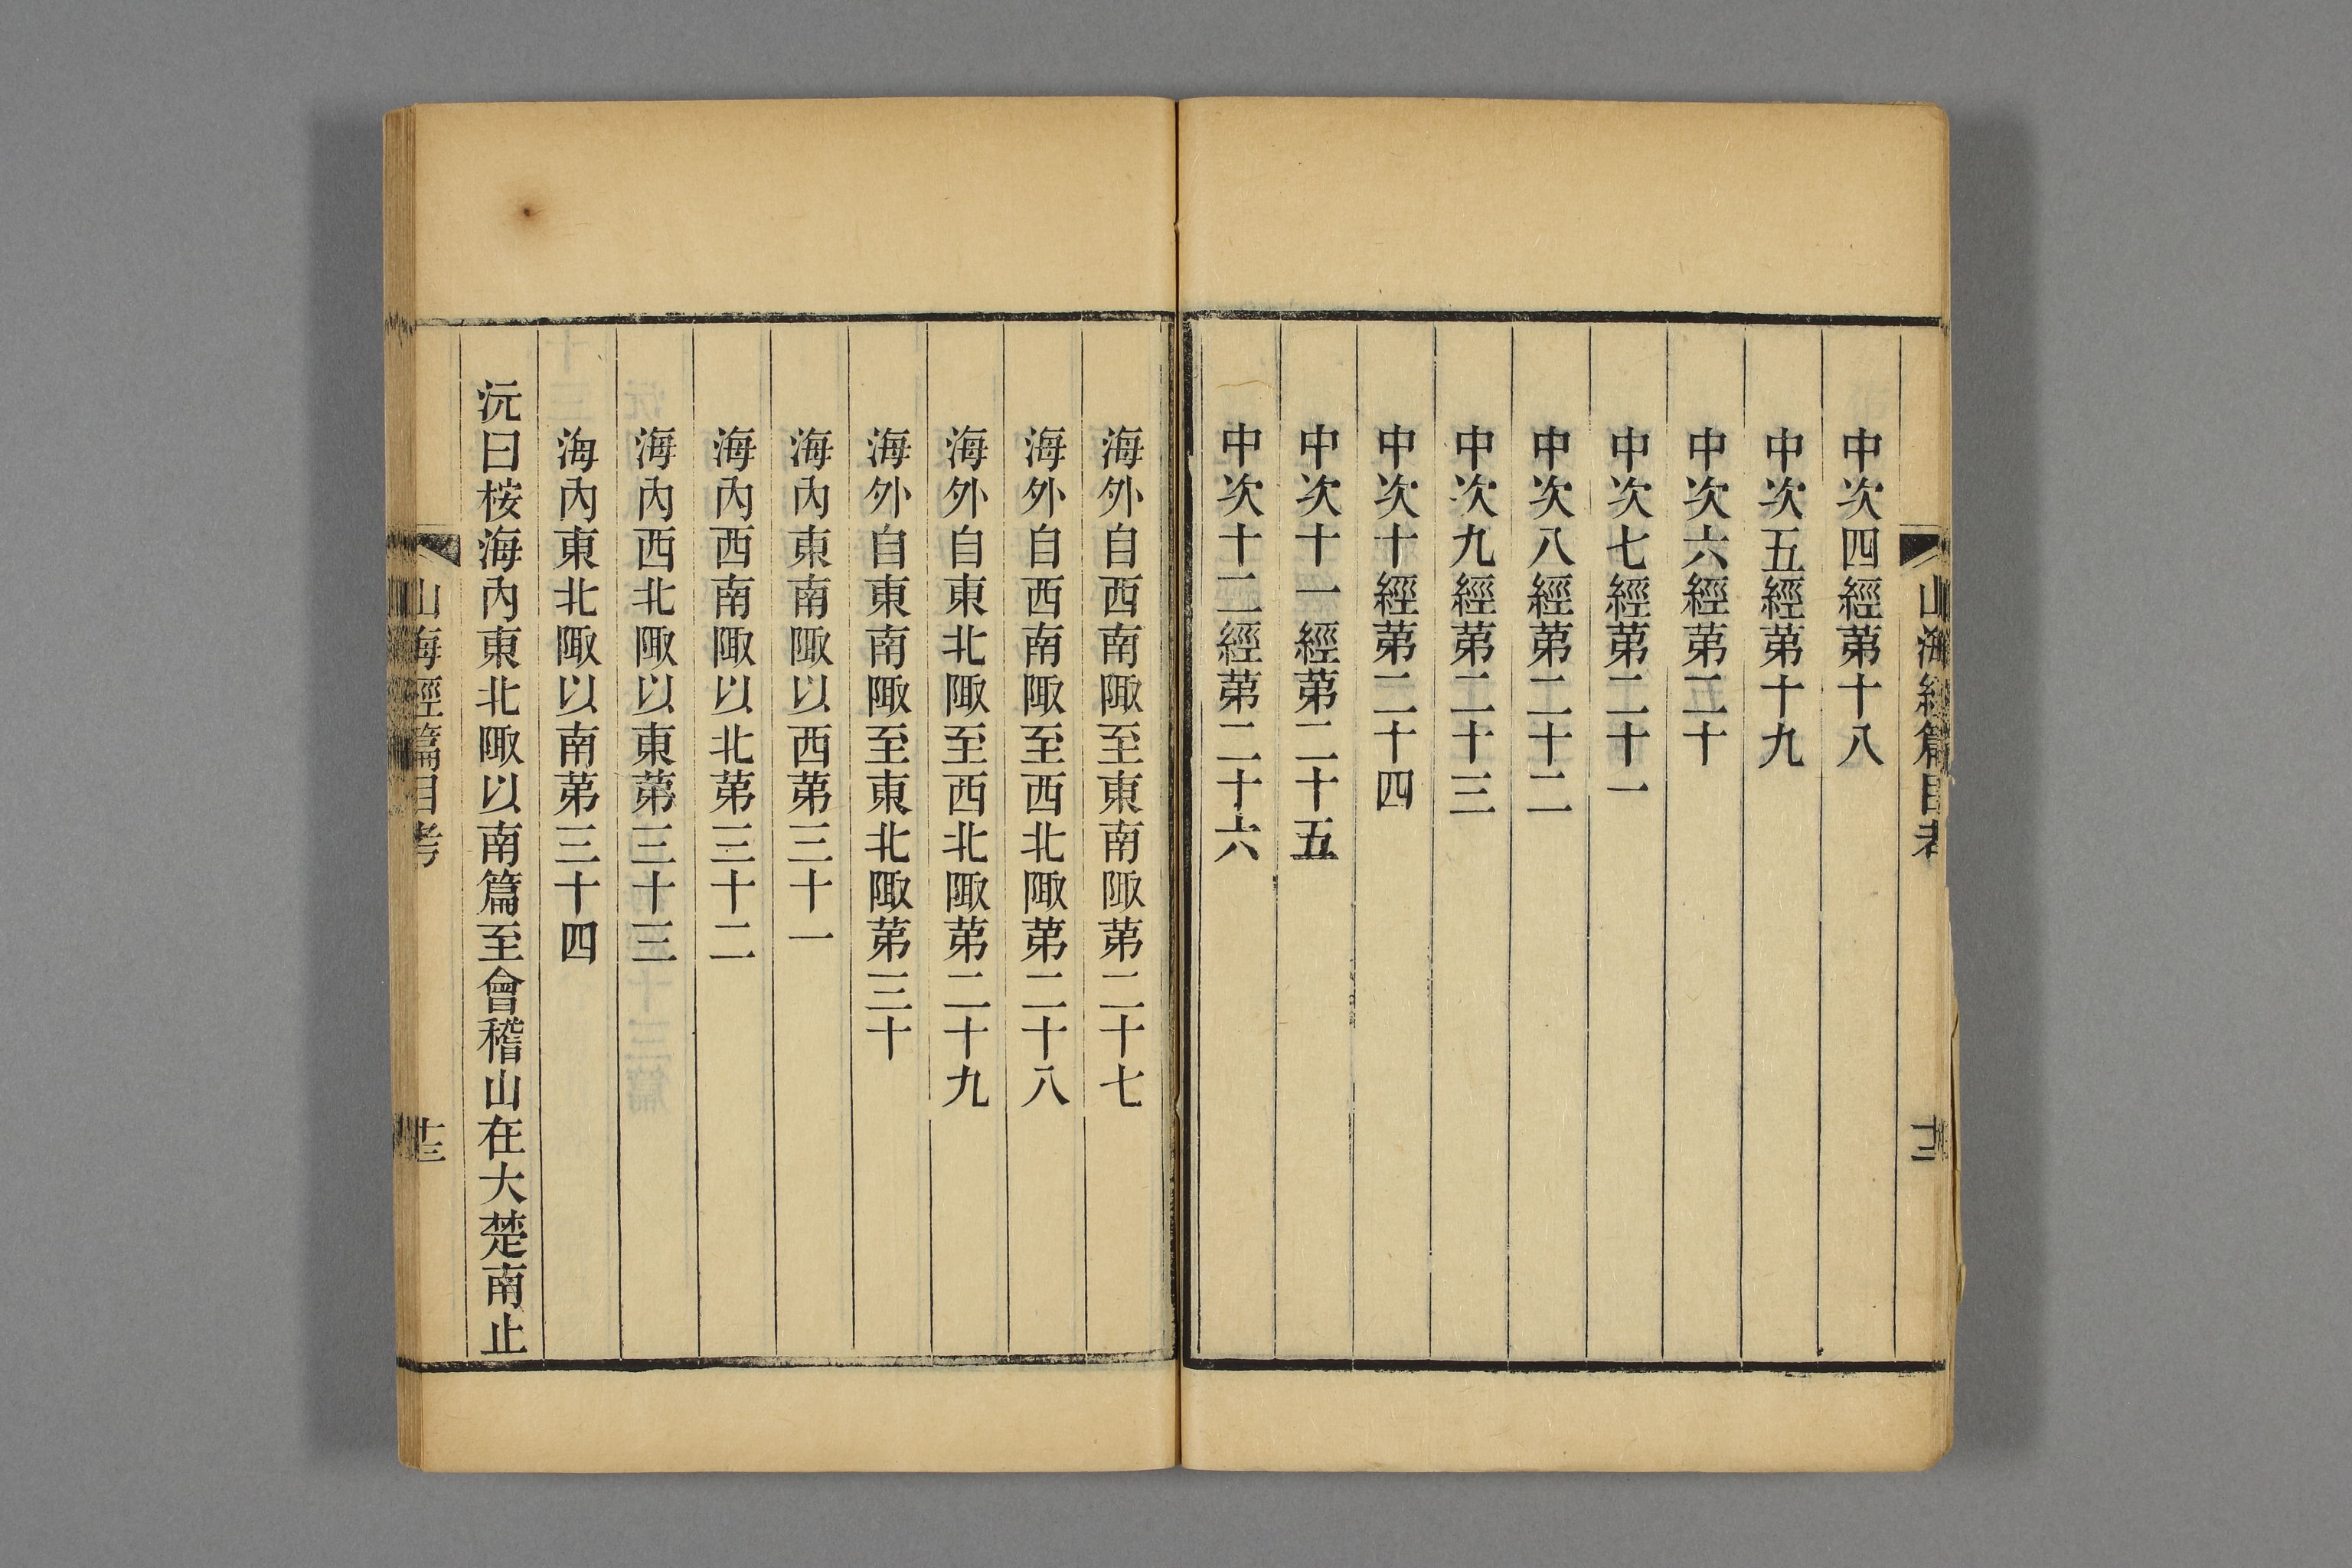 山海經篇目考
十二
中次四經第十八
中次五經第十九
中次六經第二十
中次七經第二十一
中次八經第二十二
中次九經第二十三
中次十經第二十四
中次十一經第二十五
中次十二經第二十六
海外自西南陬至東南陬第二十七
海外自西南陬至西北陬第二十八
海外自東北陬至西北陬第二十九
海外自東南陬至東北陬第三十
海內東南陬以西第三十一
海內西南陬以北第三十二
海內西北陬以東第三十三
海內東北陬以南第三十四
沅曰桉海內東北陬以南篇至會稽山在大楚南止
山海經篇目考
十三